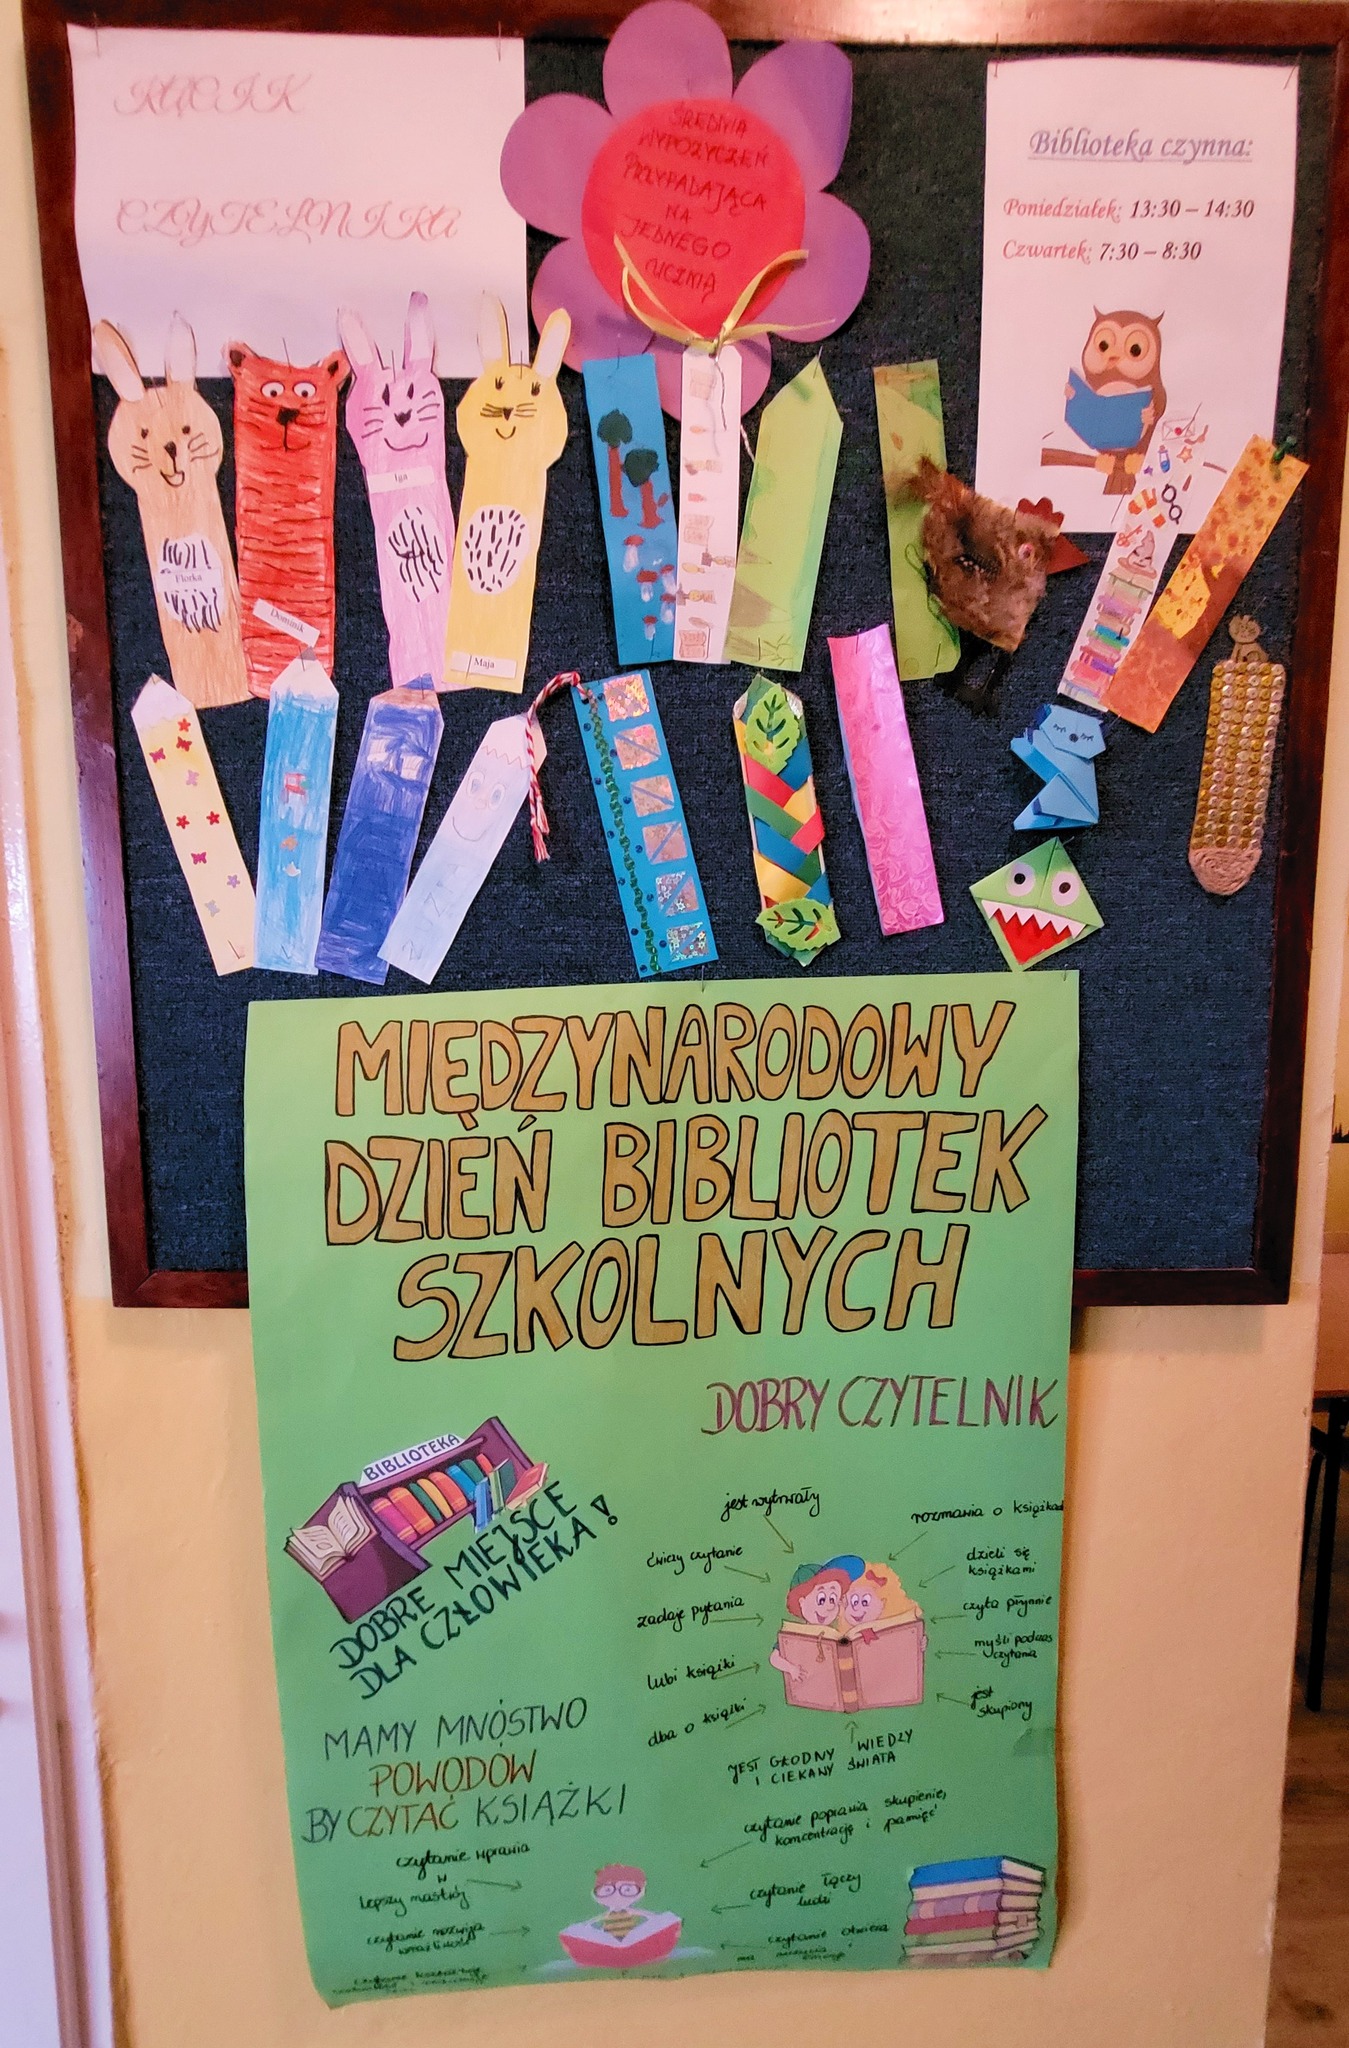 KĄCIK
CZYTELNIKA
ŚREDNIA
WYPOŻYCZEŃ
PRZYPADAJĄCA
NA
JEDNEGO
UCZNIĄ
Biblioteka czynna:
Poniedziałek: 13:30 – 14:30
Czwartek: 7:30 – 8:30
Florka
Dominik
Iga
Maja
MIĘDZYNARODOWY
DZIEŃ BIBLIOTEK
SZKOLNYCH
BIBLIOTEKA
DOBRE MIEJSCE
DLA CZŁOWIEKA!
DOBRY CZYTELNIK
jest wytrwały
rozmawia o książkach
ćwiczy czytanie
dzieli się
książkami
zadaje pytania
czyta płynnie
lubi książki
myśli podczas
czytania
dba o książki
jest
skupiony
JEST GŁODNY WIEDZY
I CIEKANY ŚWIATA
MAMY MNÓSTWO
POWODÓW
BY CZYTAĆ KSIĄŻKI
czytanie poprawia skupienie,
koncentrację i pamięć
czytanie wprawia
w
lepszy nastrój
czytanie łączy
ludzi
czytanie rozwija
wrażliwość
czytanie otwiera
na
czytanie